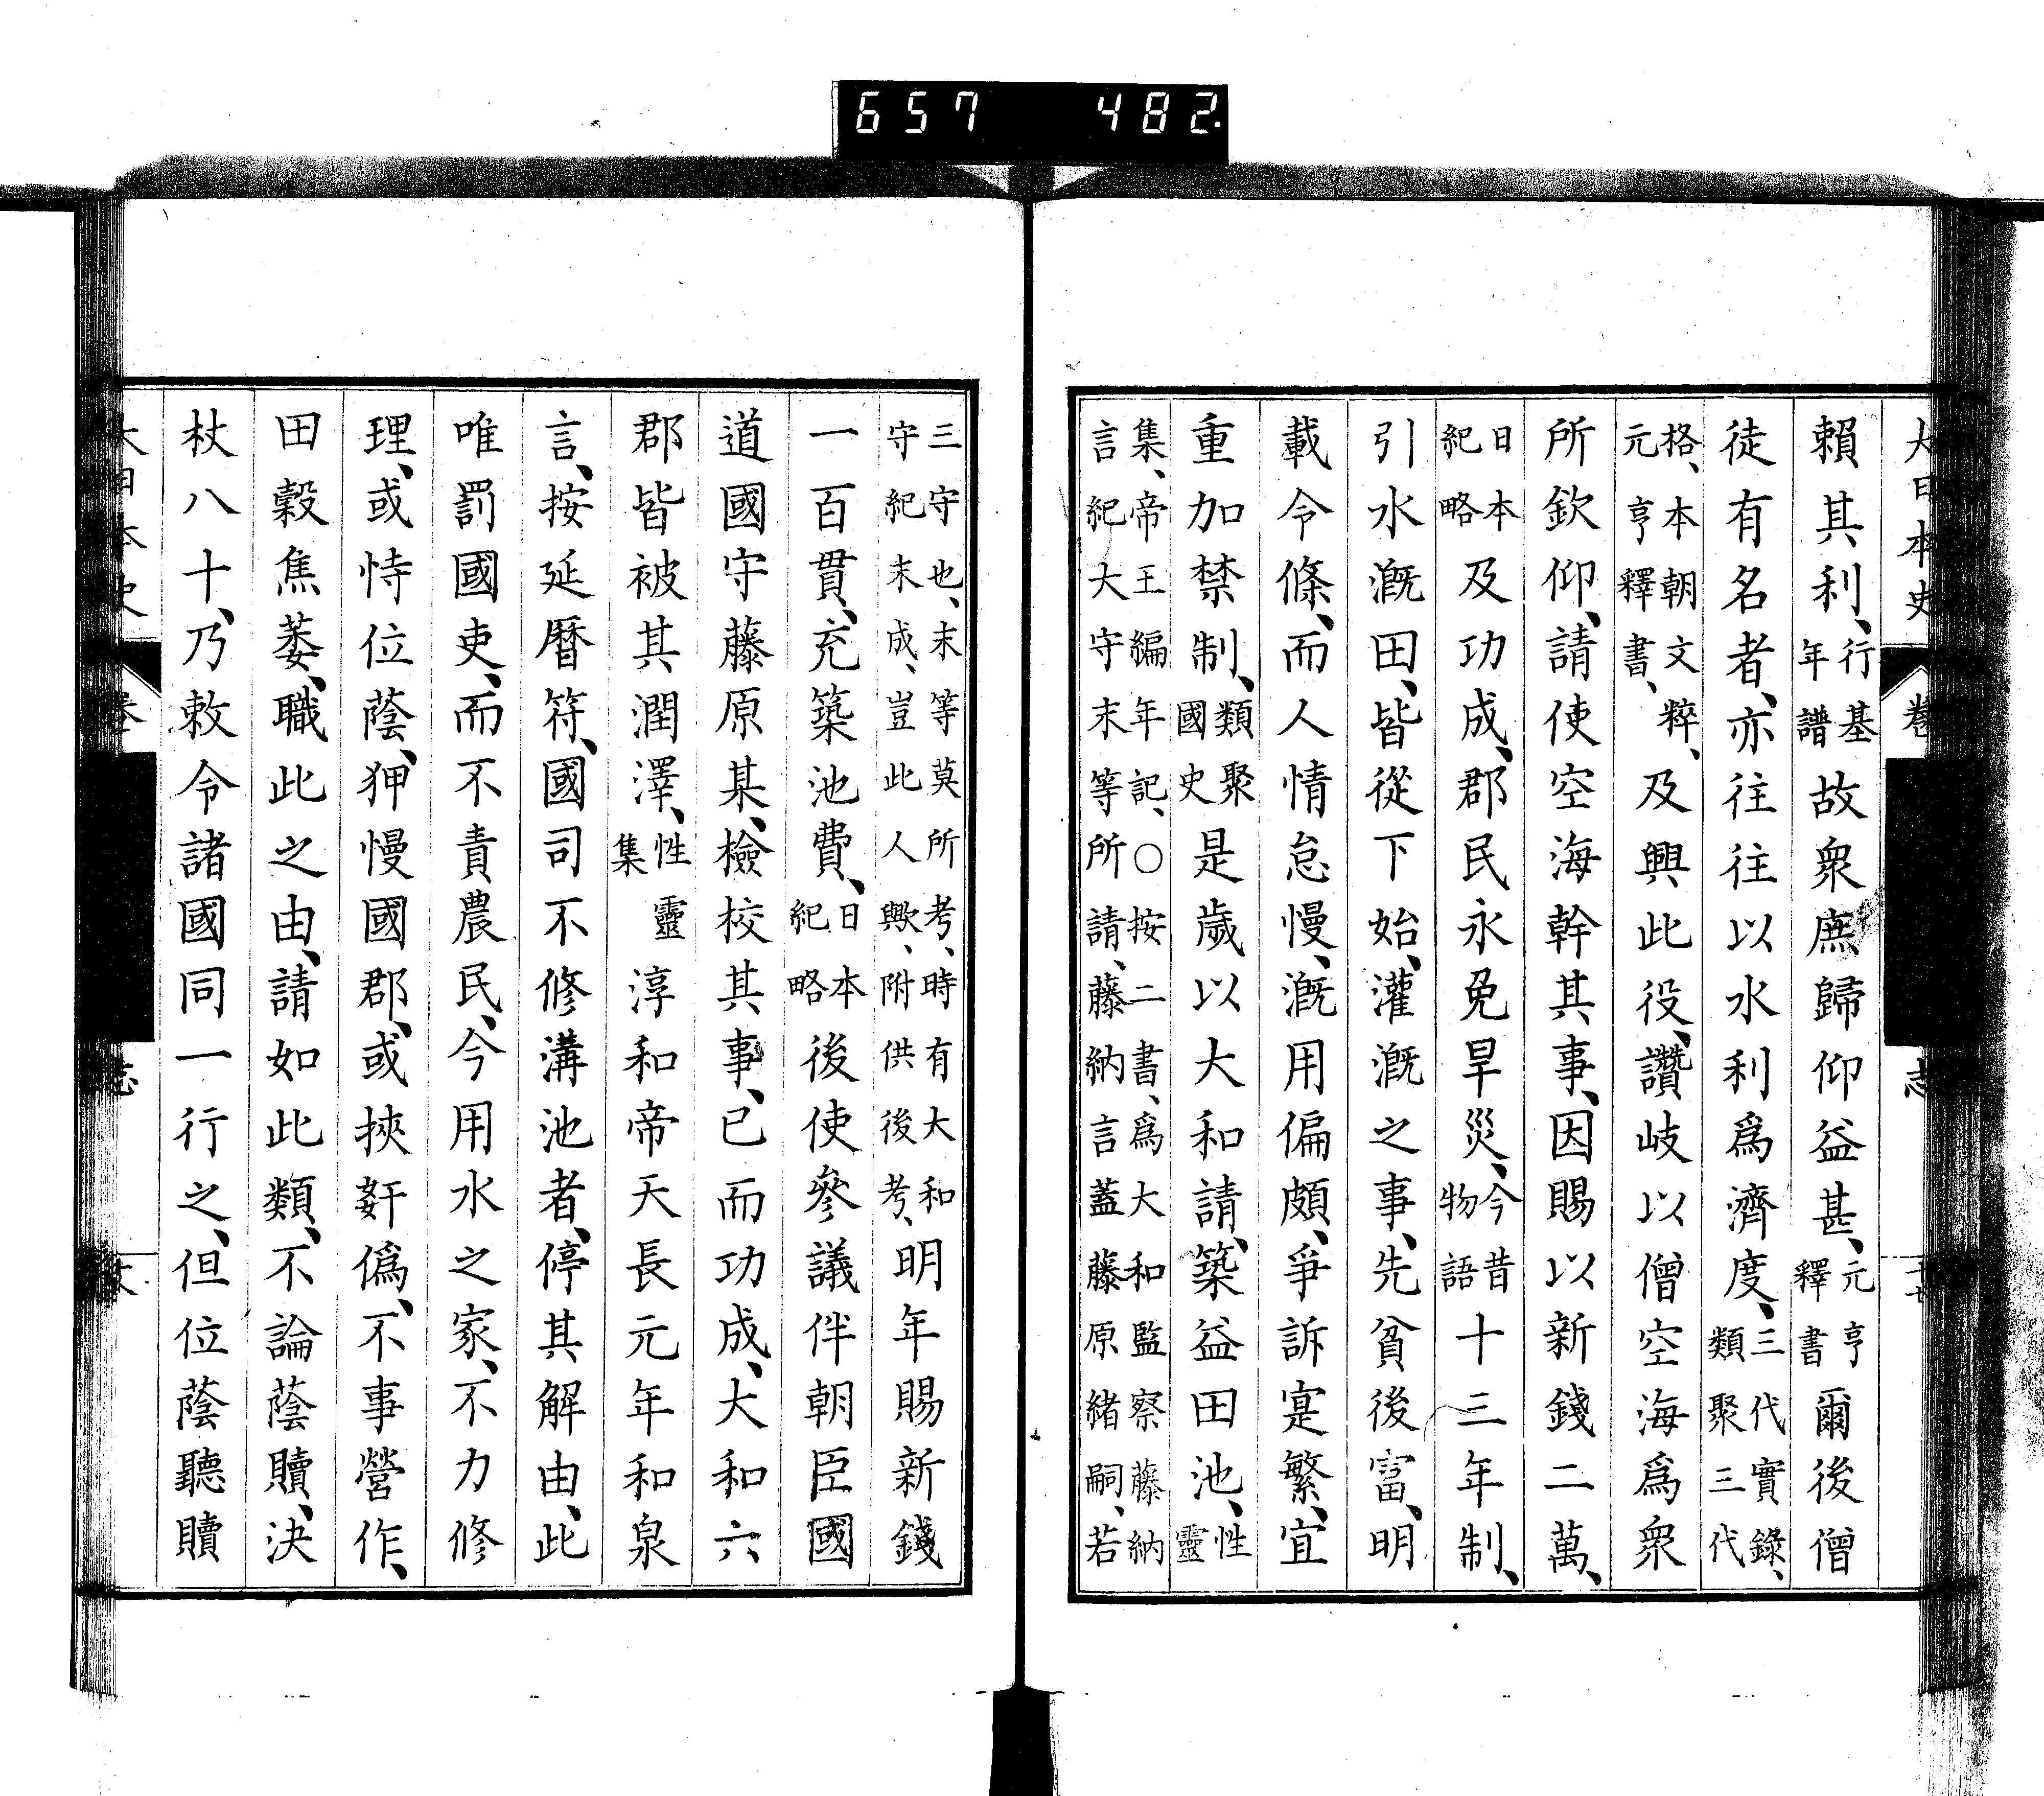 657 482
大日本史 卷 志
賴其利、行基年譜故衆庶歸仰益甚、元亨釋書爾後僧
徒有名者、亦往往以水利爲濟度、三代實錄、類聚三代
格、本朝文粹、元亨釋書、及興此役、讚岐以僧空海爲衆
所欽仰、請使空海幹其事、因賜以新錢二萬、
日本紀略及功成、郡民永免旱災、今昔物語十三年制、
引水漑田、皆從下始、灌漑之事、先貧後富、明
載令條、而人情怠慢、漑用偏頗、爭訴寔繁、宜
重加禁制、類聚國史是歲以大和請、築益田池、性靈
集、帝王編年記、○按二書、爲大和監察藤納言紀大守末等所請、藤納言蓋藤原緒嗣、若
三守也、末等莫所考、時有大和守紀末成、豈此人歟、附供後考、明年賜新錢
一百貫、充築池費、日本紀略後使參議伴朝臣國
道國守藤原某、檢校其事、已而功成、大和六
郡皆被其潤澤、性靈集淳和帝天長元年和泉
言、按延曆符、國司不修溝池者、停其解由、此
唯罰國吏、而不責農民、今用水之家、不力修
理、或恃位蔭、狎慢國郡、或挾姧僞、不事營作、
田穀焦萎、職此之由、請如此類、不論蔭贖、決
杖八十、乃敕令諸國同一行之、但位蔭聽贖
大日本史 卷 志